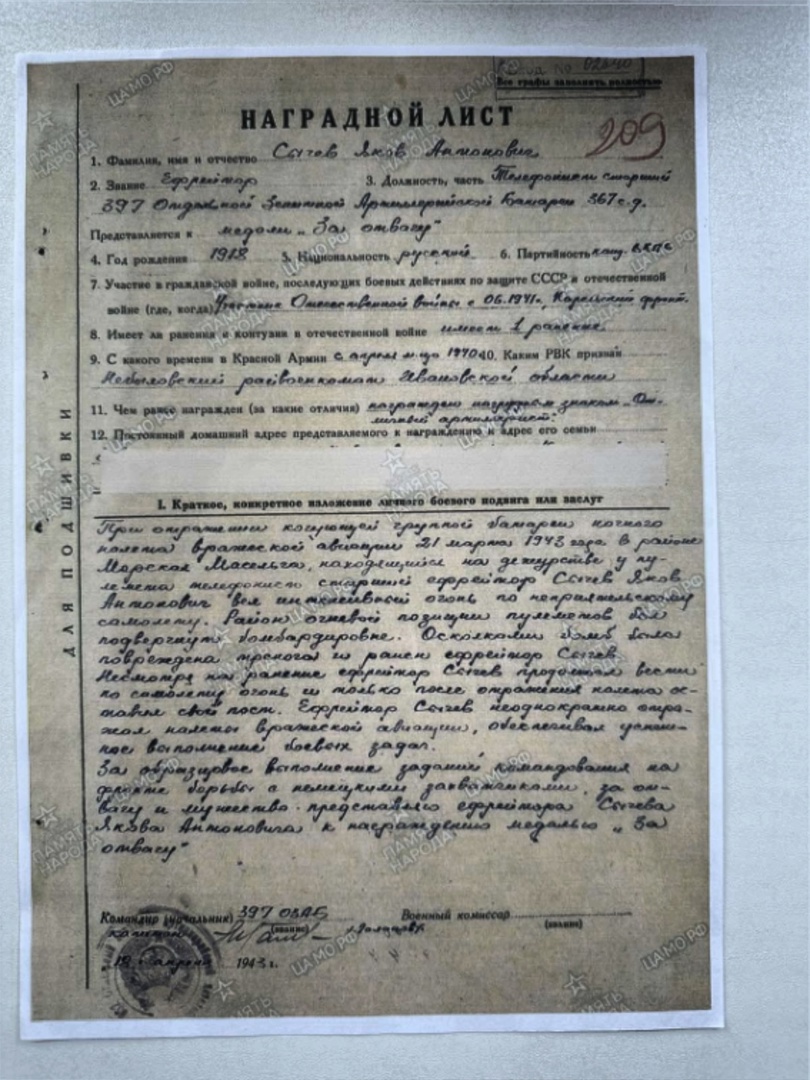 Все графы заполнять полностью
НАГРАДНОЙ ЛИСТ
209
1. Фамилия, имя и отчество Сычев Яков Антонович
2. Звание Ефрейтор 3. Должность, часть Телефонист старший
397 Отдельной Зенитной Артиллерийской Батареи 367 с.д.
Представляется к медали „За отвагу"
4. Год рождения 1918 5. Национальность русский 6. Партийность канд. ВКПб
7. Участие в гражданской войне, последующих боевых действиях по защите СССР и отечественной
войне (где, когда) Участник Отечественной войны с 06.1941г. Карельский фронт.
8. Имеет ли ранения и контузии в отечественной войне имеет 1 ранение
9. С какого времени в Красной Армии с апрел м-ца 1940 10. Каким РВК призван
Небыловский райвоенкомат Ивановской области
11. Чем ранее награжден (за какие отличия) награжден нагрудным знаком „От-
личный артиллерист"
12. Постоянный домашний адрес представляемого к награждению и адрес его семьи
I. Краткое, конкретное изложение личного боевого подвига или заслуг
При отражении кочующей группой батареи ночного
налета вражеской авиации 21 марта 1943 года в районе
Морская Масельга, находящийся на дежурстве у пу-
лемета телефонист старший ефрейтор Сычев Яков
Антонович вел интенсивный огонь по неприятельскому
самолету. Район огневой позиции пулеметов был
подвергнут бомбардировке. Осколками бомб была
повреждена тренога и ранен ефрейтор Сычев
Несмотря на ранение ефрейтор Сычев продолжал вести
по самолету огонь и только после отражения налета ос-
тавил свой пост. Ефрейтор Сычев неоднократно отра-
жал налеты вражеской авиации, обеспечивал успеш-
ное выполнение боевых задач.
За образцовое выполнение заданий командования на
фронте борьбы с немецкими захватчиками, за от-
вагу и мужество представляю ефрейтора Сычева
Якова Антоновича к награждению медалью „За
отвагу"
Командир (начальник) 397 ОЗАБ Военный комиссар
капитан (звание) (звание)
19 апреля 1943 г.
ДЛЯ ПОДШИВКИ
ЦАМО РФ
ПАМЯТЬ НАРОДА